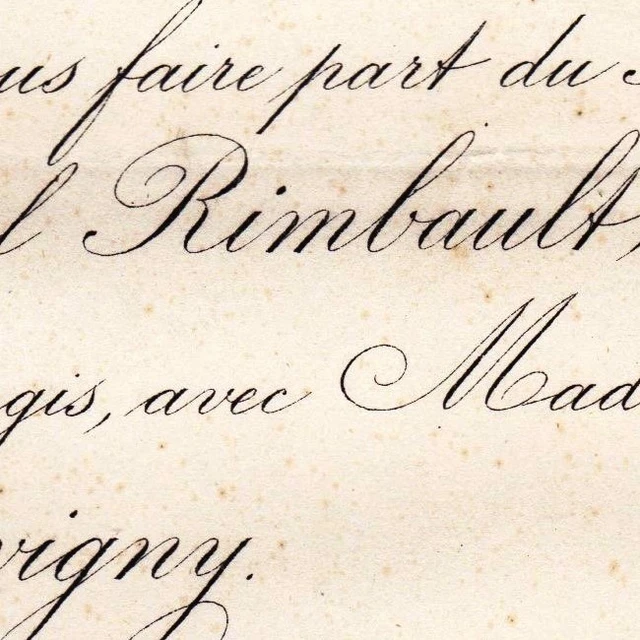 us faire part du
l Rimbault,
gis, avec Mad
vigny.